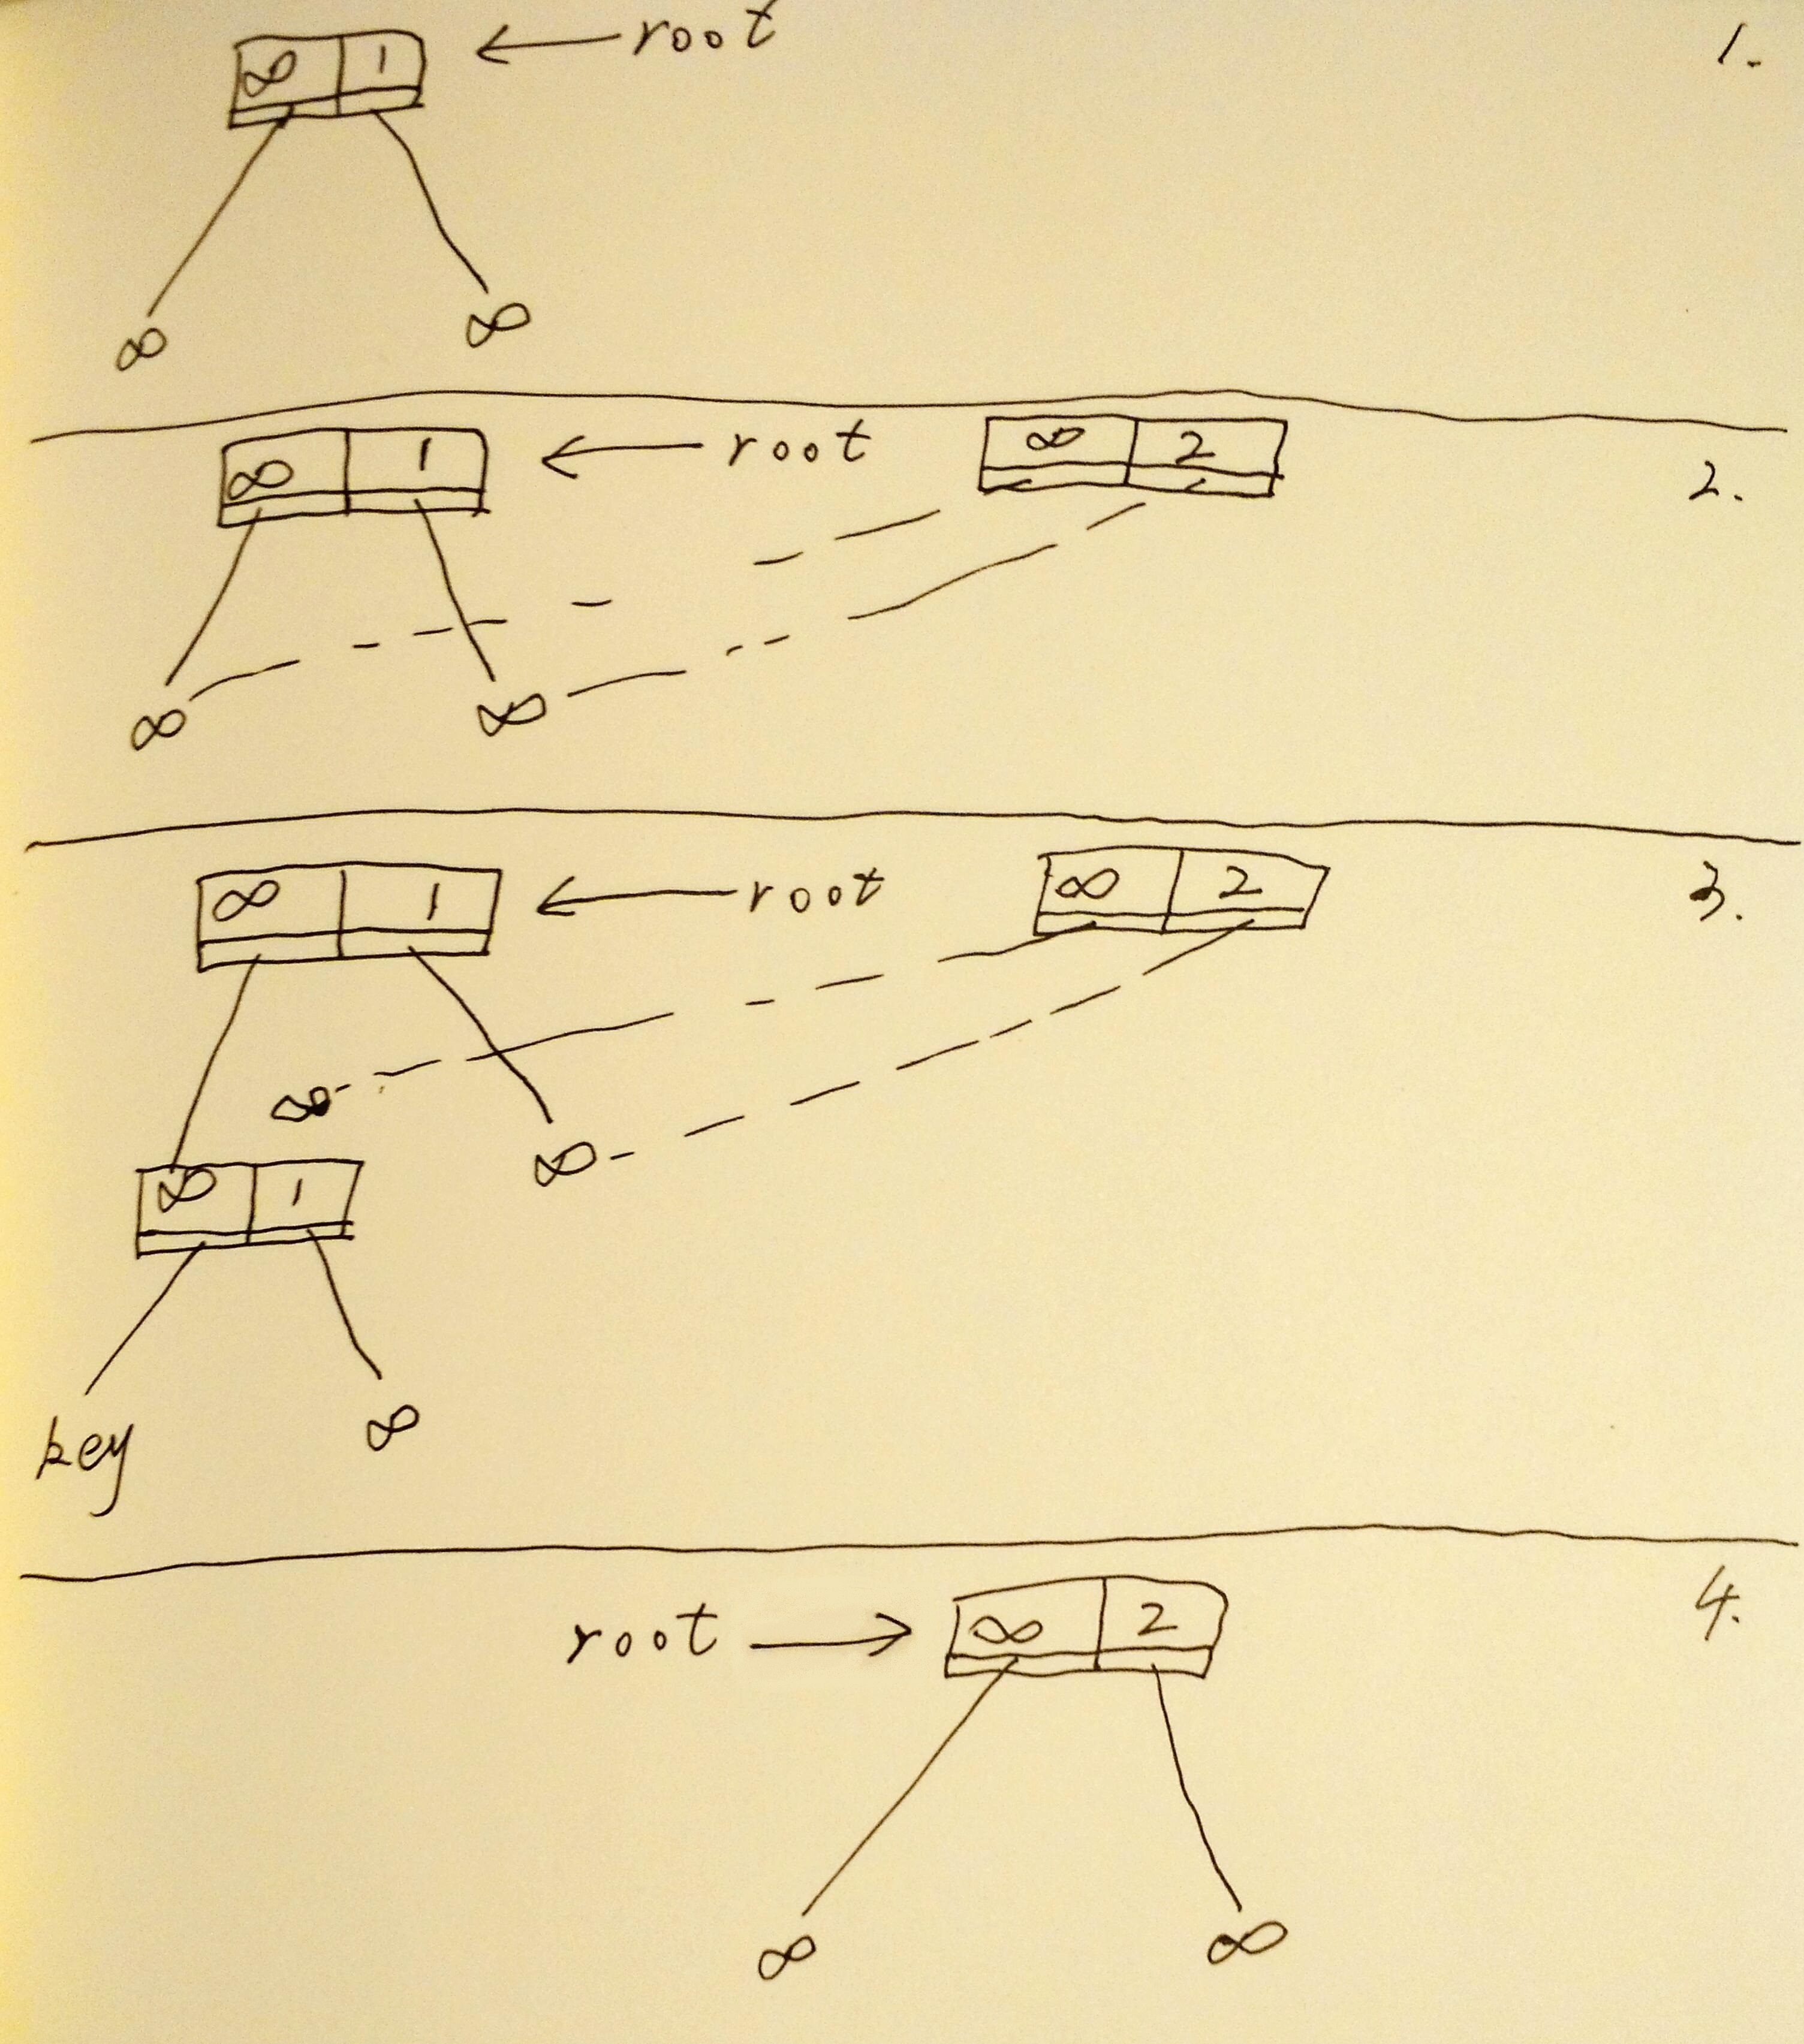 ∞ 1 ← root 1.
∞ ∞
∞ 1 ← root ∞ 2 2.
∞ ∞
∞ 1 ← root ∞ 2 3.
∞ ∞
∞ 1
key ∞
root → ∞ 2 4.
∞ ∞